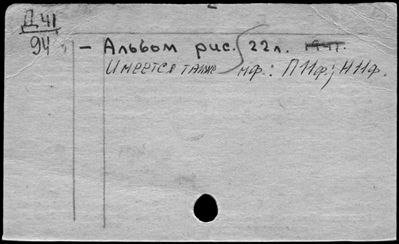 Д 41
94
– Альбом рис. 22 л. 1941.
Имеется также мф.: П 11ф; Н 11ф.